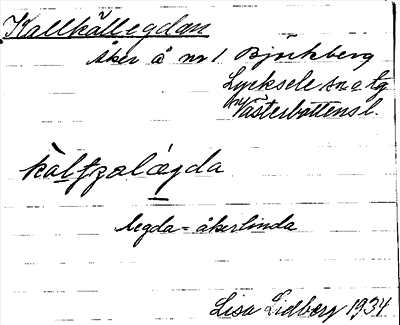 Kallkällegdan
Åker å nr 1 Björkberg
Lycksele sn o tg
Västerbottens l.
legda = åkerlinda
Lisa Lidberg 1934